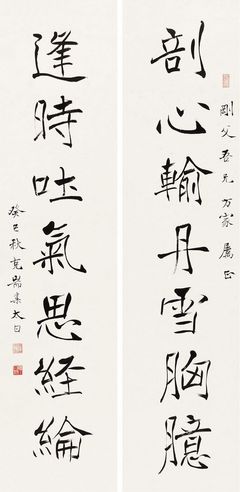 剛父吾兄方家屬正
剖心輸丹雪胸臆
逢時吐氣思經綸
癸巳秋克耑集太白